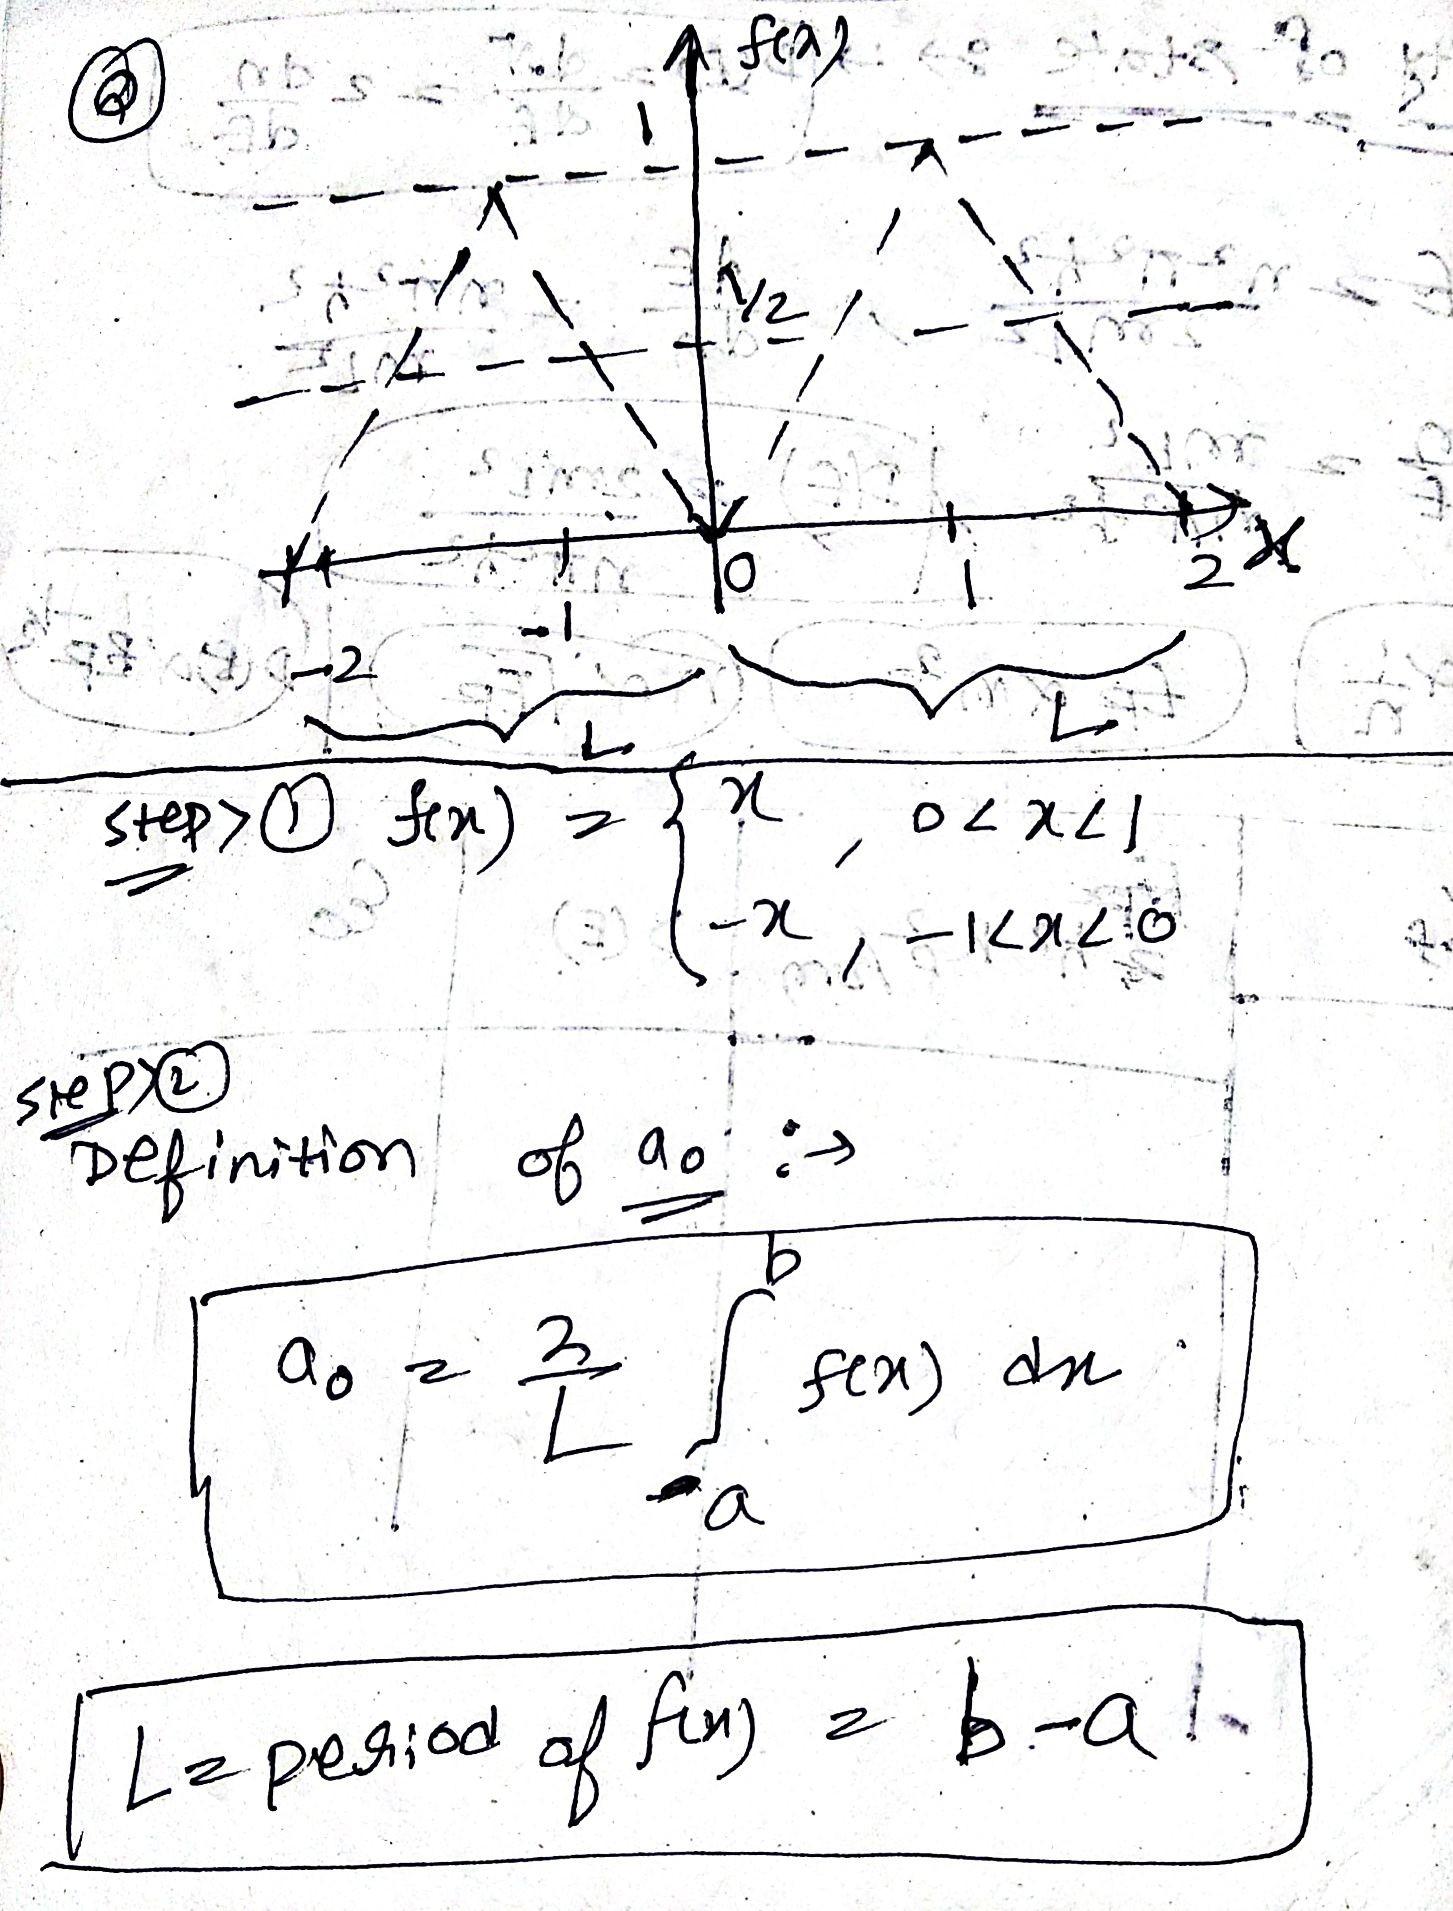 Q
f(x)
1
1/2
0
1
2
X
-1
-2
L
L
Step> ① f(x) = { x , 0 < x < 1
-x , -1 < x < 0
Step> ②
Definition of a₀ :→
a₀ = 2/L ∫ₐᵇ f(x) dx
L = period of f(x) = b - a